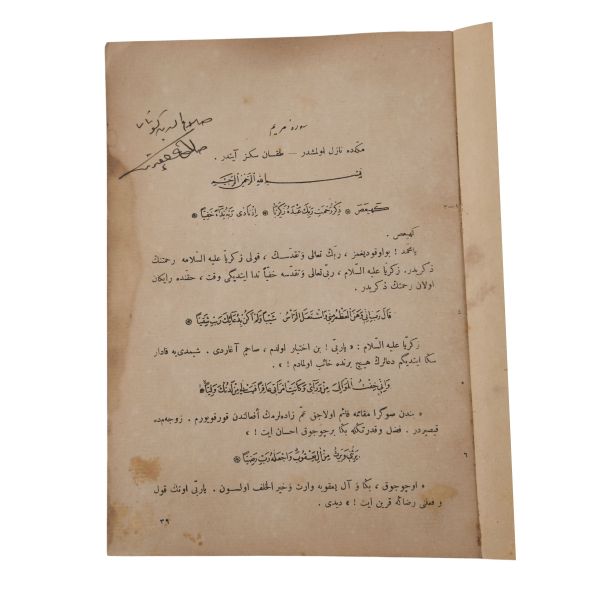 سورهٔ مریم
مکّه‌ده نازل اولمشدر — طقسان سکز آیتدر .
بسم الله الرحمن الرحیم
كهيعص ❋ ذِكْرُ رَحْمَتِ رَبِّكَ عَبْدَهُ زَكَرِيَّا ❋ اِذْ نَادٰى رَبَّهُ نِدَاءً خَفِيًّا
كهيعص .
یا محمّد ! بو اوقودیغمز ، ربّك تعالی و تقدّسك ، قولی زکریّا علیه السّلامه رحمتنك
ذکریدر . زکریّا علیه السّلام ، ربّی تعالی و تقدسه خفیّاً ندا ایتدیگی وقت ، حقنده رایکان
اولان رحمتك ذکریدر .
قَالَ رَبِّ اِنِّي وَهَنَ الْعَظْمُ مِنِّي وَاشْتَعَلَ الرَّأْسُ شَيْبًا وَلَمْ اَكُنْ بِدُعَائِكَ رَبِّ شَقِيًّا ❋
زکریّا علیه السّلام : « یاربّی ! بن اختیار اولدم ، صاچم آغاردی . شیمدی‌یه قادار
سکا ایتدیگم دعالرك هیچ برنده خائب اولمادم ! » .
وَاِنِّي خِفْتُ الْمَوَالِيَ مِنْ وَرَائِي وَكَانَتِ امْرَاَتِي عَاقِرًا فَهَبْ لِي مِنْ لَدُنْكَ وَلِيًّا ❋
« بندن صوگرا مقامه قائم اولاجق عمّ زاده‌لرمك أفعالندن قورقویورم . زوجه‌م‌ده
قیصیردر . فضل و قدرتكله بكا بر چوجوق احسان ایت ! »
يَرِثُنِي وَيَرِثُ مِنْ اٰلِ يَعْقُوبَ وَاجْعَلْهُ رَبِّ رَضِيًّا ❋
« او چوجوق ، بكا و آل یعقوبه وارث و خیر الخلف اولسون . یاربّی اونك قول
و فعلنی رضاكه قرین ایت ! » دیدی .
٣٩